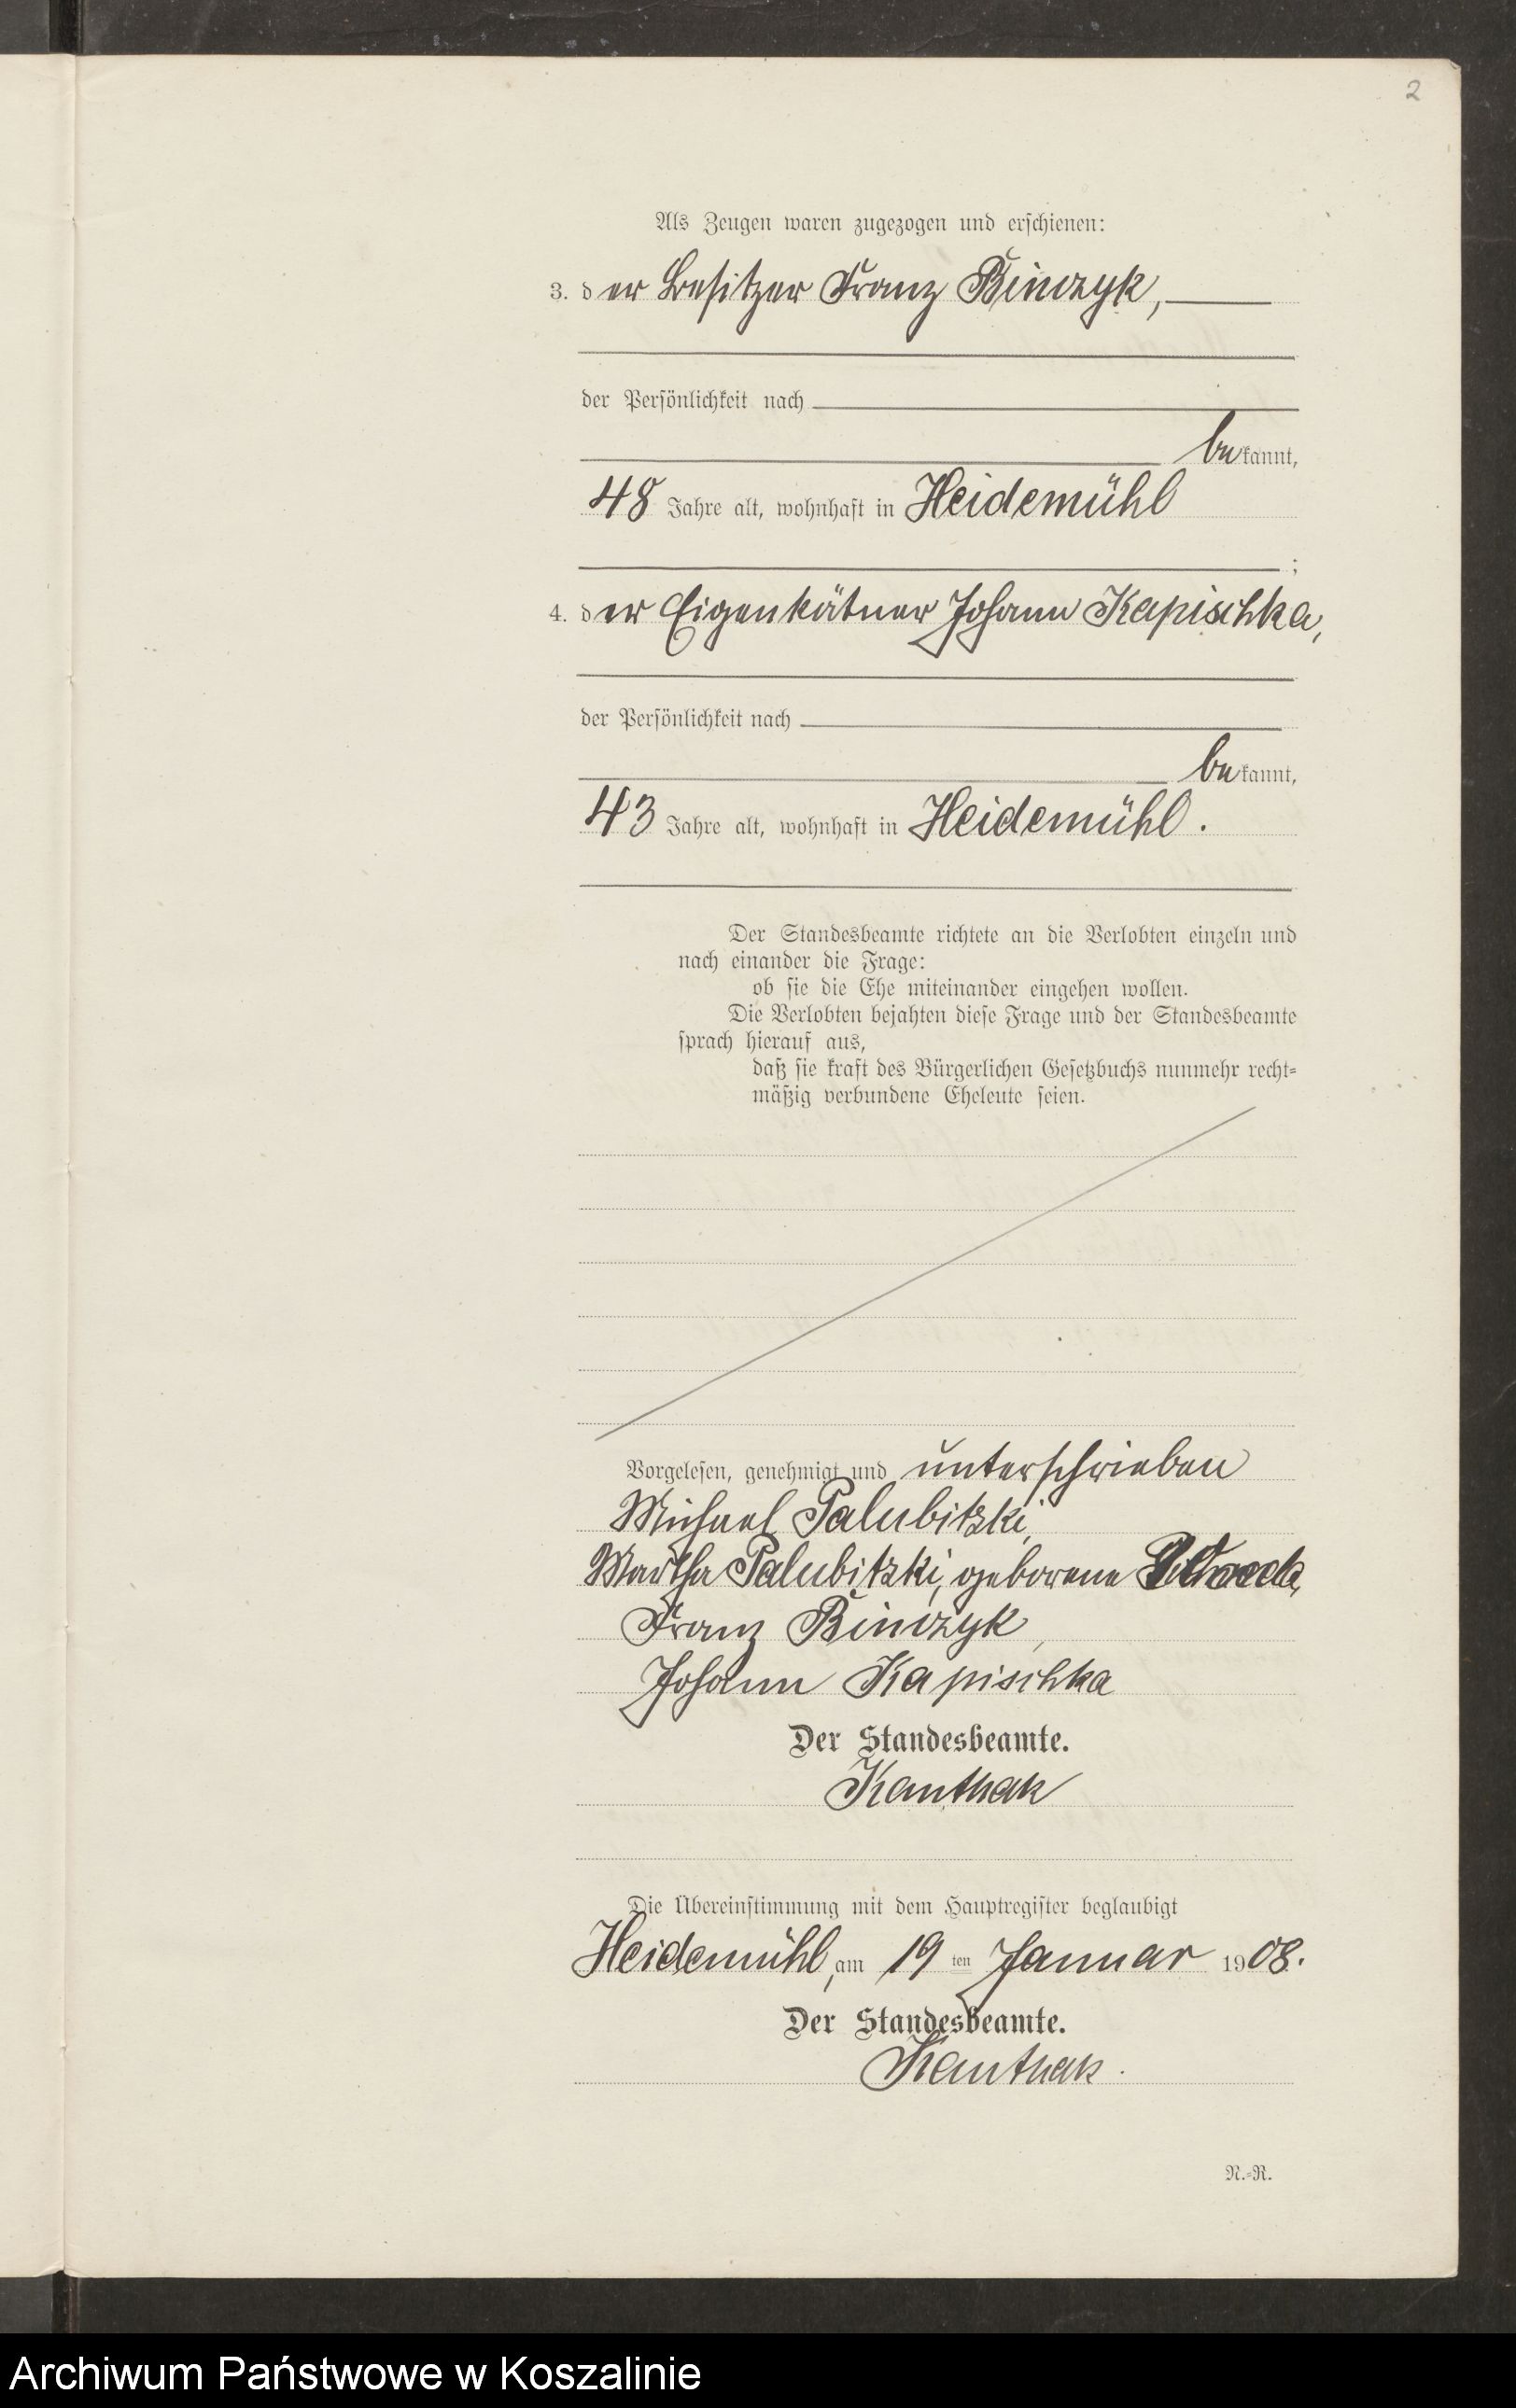 2
Als Zeugen waren zugezogen und erschienen:
3. der Besitzer Franz Binczyk,
der Persönlichkeit nach
bekannt,
48 Jahre alt, wohnhaft in Heidemühl
;
4. der Eigenkätner Johann Kapischka,
der Persönlichkeit nach
bekannt,
43 Jahre alt, wohnhaft in Heidemühl.
Der Standesbeamte richtete an die Verlobten einzeln und
nach einander die Frage:
ob sie die Ehe miteinander eingehen wollen.
Die Verlobten bejahten diese Frage und der Standesbeamte
sprach hierauf aus,
daß sie kraft des Bürgerlichen Gesetzbuchs nunmehr recht=
mäßig verbundene Eheleute seien.
Vorgelesen, genehmigt und unterschrieben
Michael Palubitzki,
Martha Palubitzki, geborene
Franz Binczyk,
Johann Kapischka
Der Standesbeamte.
Kanthak
Die Übereinstimmung mit dem Hauptregister beglaubigt
Heidemühl, am 19 ten Januar 1908.
Der Standesbeamte.
Kanthak.
N.=R.
Archiwum Państwowe w Koszalinie